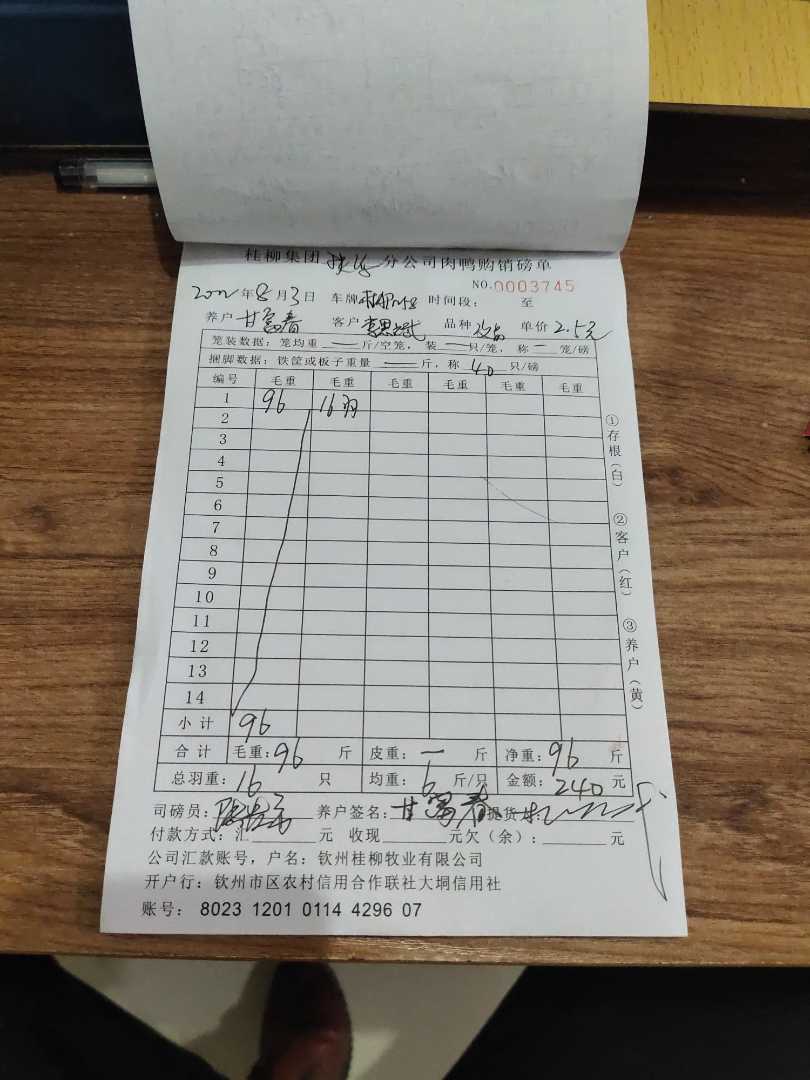 桂柳集团 分公司肉鸭购销磅单
NO.0003745
2022年8月3日 车牌 时间段: 至
养户 甘富春 客户 李思斌 品种 次品 单价 2.5元
笼装数据: 笼均重 — 斤/空笼, 装 — 只/笼, 称 — 笼/磅
捆脚数据: 铁筐或板子重量 — 斤, 称 40 只/磅
编号 毛重 毛重 毛重 毛重 毛重 毛重
1 96 16羽
2
3
4
5
6
7
8
9
10
11
12
13
14
小计 96
合计 毛重:96 斤 皮重: — 斤 净重:96 斤
总羽重: 16 只 均重: 6 斤/只 金额: 240 元
司磅员: 养户签名: 甘富春 提货
付款方式: 汇 元 收现 元欠(余): 元
公司汇款账号, 户名: 钦州桂柳牧业有限公司
开户行: 钦州市区农村信用合作联社大垌信用社
账号: 8023 1201 0114 4296 07
①存根(白)
②客户(红)
③养户(黄)